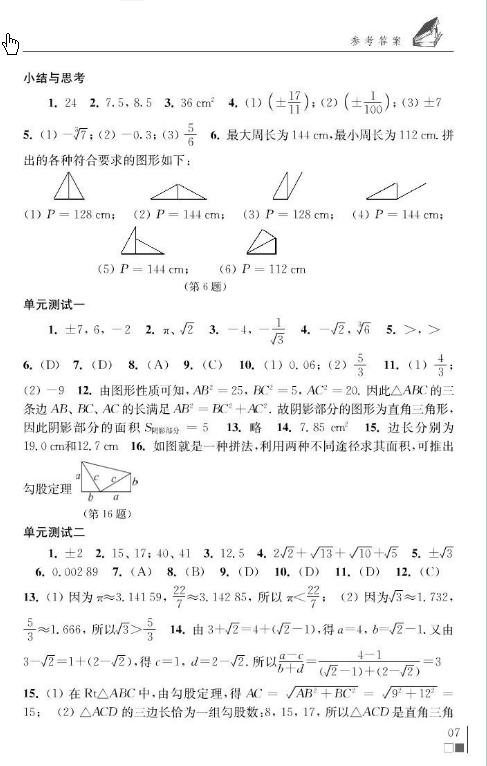 参考答案
小结与思考
1. 24 2. 7.5, 8.5 3. 36 cm² 4. (1) (±17/11); (2) (±1/100); (3) ±7
5. (1) −∛7; (2) −0.3; (3) 5/6 6. 最大周长为 144 cm,最小周长为 112 cm. 拼
出的各种符合要求的图形如下:
(1) P = 128 cm; (2) P = 144 cm; (3) P = 128 cm; (4) P = 144 cm;
(5) P = 144 cm; (6) P = 112 cm
(第 6 题)
单元测试一
1. ±7, 6, −2 2. π、√2 3. −4, −1/√3 4. −√2, ∛6 5. >, >
6. (D) 7. (D) 8. (A) 9. (C) 10. (1) 0.06; (2) 5/3 11. (1) 4/3;
(2) −9 12. 由图形性质可知, AB² = 25, BC² = 5, AC² = 20. 因此△ABC 的三
条边 AB、BC、AC 的长满足 AB² = BC² + AC². 故阴影部分的图形为直角三角形,
因此阴影部分的面积 S阴影部分 = 5 13. 略 14. 7.85 cm² 15. 边长分别为
19.0 cm和12.7 cm 16. 如图就是一种拼法,利用两种不同途径求其面积,可推出
勾股定理 a c c b b a
(第 16 题)
单元测试二
1. ±2 2. 15、17; 40、41 3. 12.5 4. 2√2+√13+√10+√5 5. ±√3
6. 0.002 89 7. (A) 8. (B) 9. (D) 10. (D) 11. (D) 12. (C)
13. (1) 因为 π≈3.141 59, 22/7≈3.142 85, 所以 π<22/7; (2) 因为√3≈1.732,
5/3≈1.666, 所以√3>5/3 14. 由 3+√2=4+(√2−1),得 a=4, b=√2−1. 又由
3−√2=1+(2−√2),得 c=1, d=2−√2. 所以(a−c)/(b+d)=(4−1)/((√2−1)+(2−√2))=3
15. (1) 在 Rt△ABC 中,由勾股定理,得 AC = √(AB²+BC²) = √(9²+12²) =
15; (2) △ACD 的三边长恰为一组勾股数:8, 15, 17, 所以△ACD 是直角三角
07